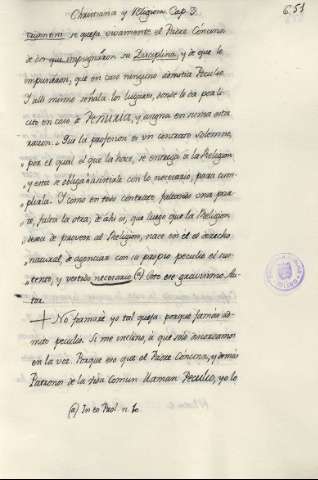 Christiana y Religiosa Cap. 3.
651
se quexa vivamente el Padre Cóncina
de los que impugnaron su Disciplina, y de que le
imputaran, que en caso ninguno admitia Peculio.
Y alli mismo señala los lugares, donde le da por li-
cito en caso de Penuria, y asigna en suma esta
razon. Que la profesion es un contrato solemne,
por el qual el que la hace, se entrega à la Religion
y esta se obliga à asistirle con lo necesario, para cum-
plirla. Y como en todo contrato faltando una par-
te, falta la otra; de ahi es, que luego que la Religion
de proveer al Religioso, nace en el el derecho
natural, de agenciar con su propio peculio el sus-
tento, y vestido necesario (a) Esto ese gravisimo Au-
tor.
No formaré yo tal quexa, porque jamás ad-
mito peculio. Si me inclino, à que solo
en la voz. Porque eso que el Padre Cóncina, y demás
Patronos de la Vida Comun llaman Peculio, yo lo
(a) In eo Prol. n. 6.